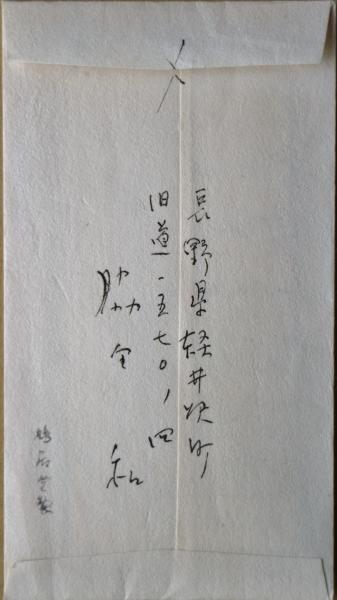 〆
長野県軽井沢町
旧道一五七〇ノ四
脇田 和
鳩居堂製